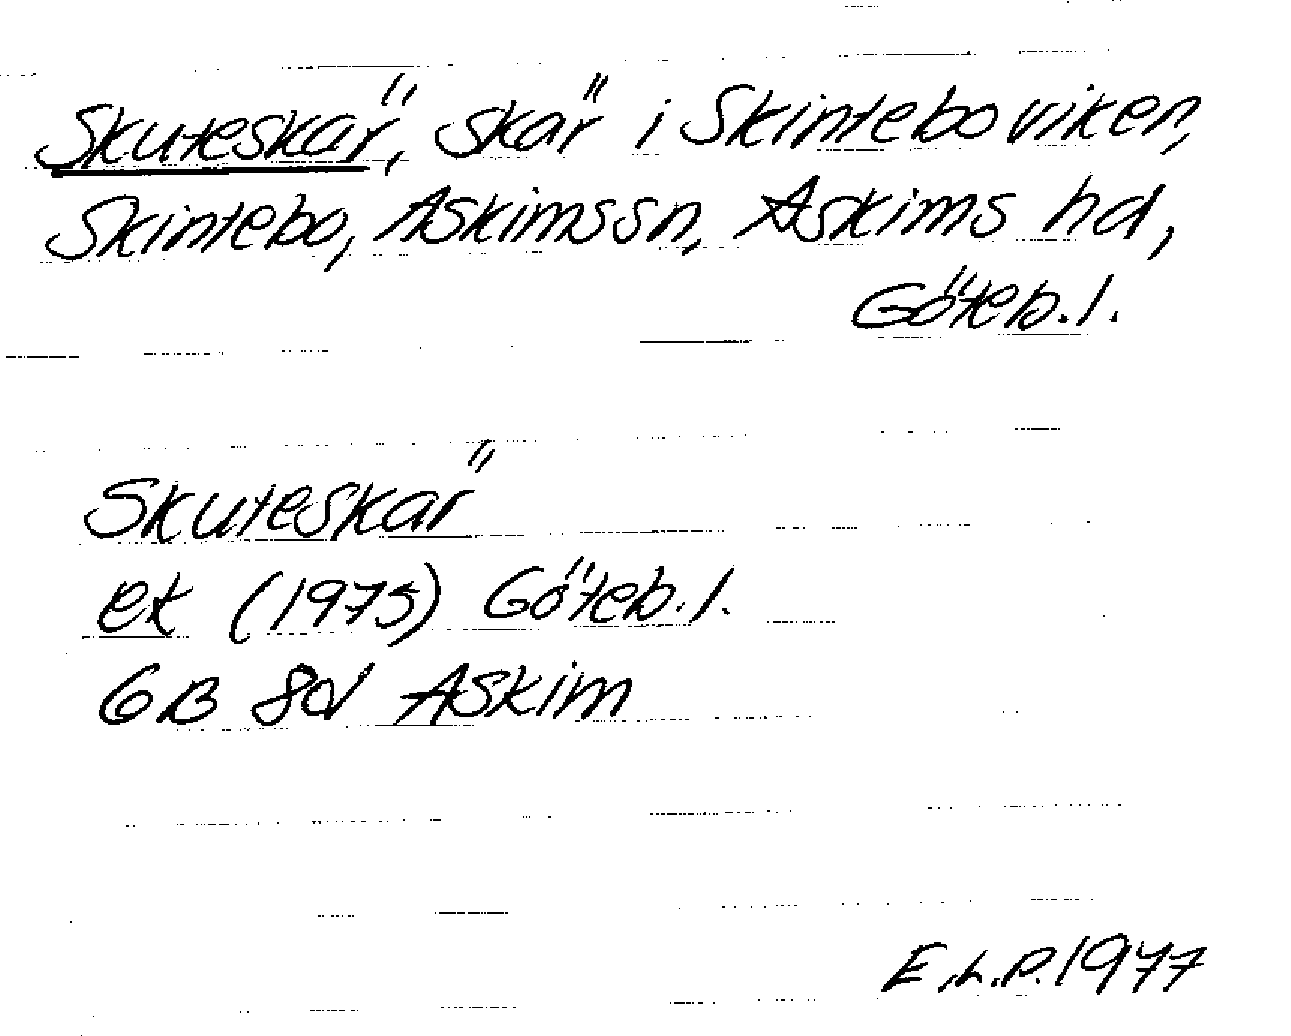 Skuteskär, skär i Skinteboviken,
Skintebo, Askims sn, Askims hd,
Göteb. l.
Skuteskär
ek (1975) Göteb. l.
6B 8d Askim
E.L.P. 1977